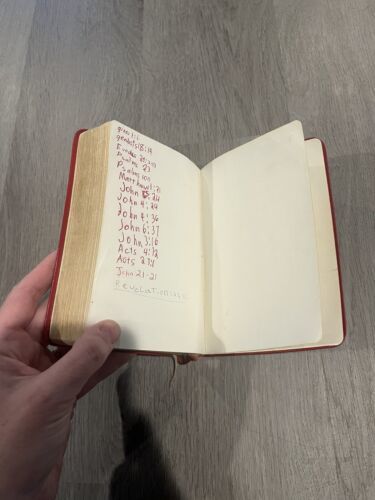 genesis 18:14
Exodus 20:
Psalms 23
Psalms 100
Matthew 1:21
John 5:24
John 4:24
John 6:36
John 6:37
John 3:16
Acts 4:12
Acts 2:
John 21-21
Revelation